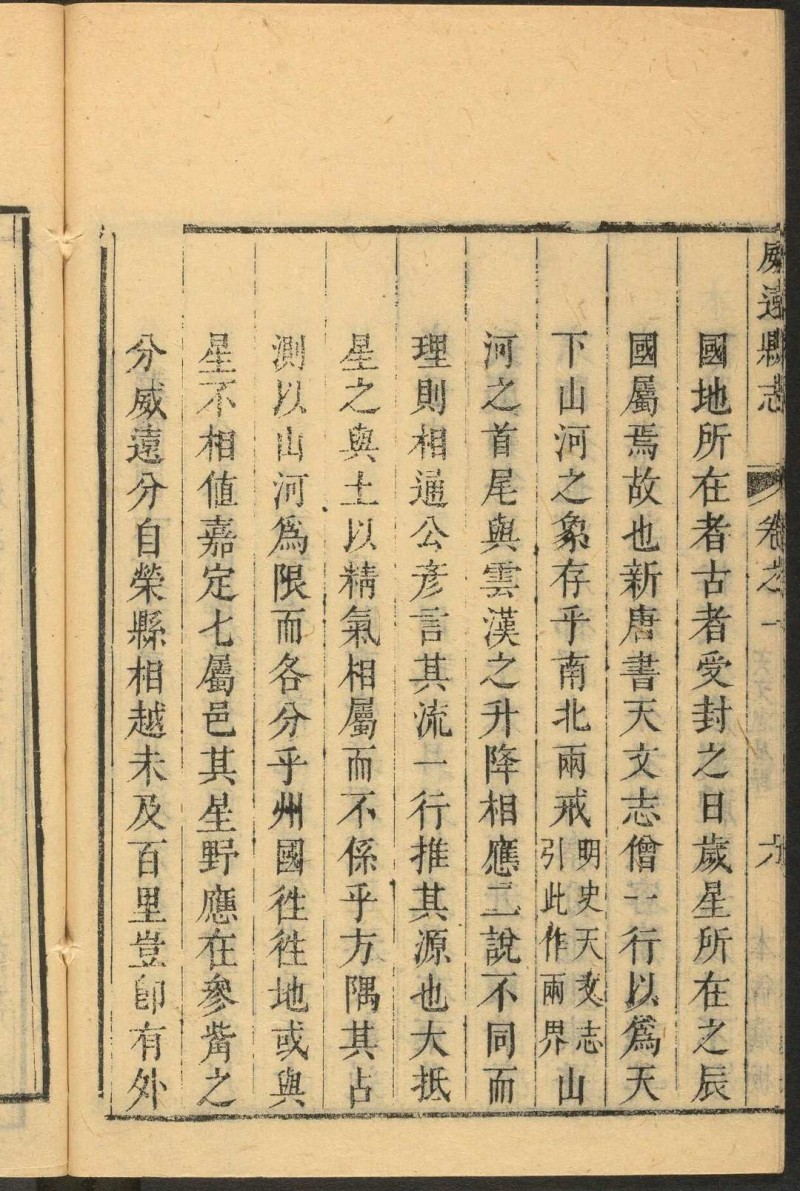 威遠縣志 卷之一 六
國地所在者古者受封之日歲星所在之辰
國屬焉故也新唐書天文志僧一行以爲天
下山河之象存乎南北兩戒明史天文志引此作兩界山
河之首尾與雲漢之升降相應二說不同而
理則相通公彥言其流一行推其源也大抵
星之與土以精氣相屬而不係乎方隅其占
測以山河爲限而各分乎州國徃徃地或與
星不相値嘉定七屬邑其星野應在參觜之
分威遠分自榮縣相越未及百里豈卽有外